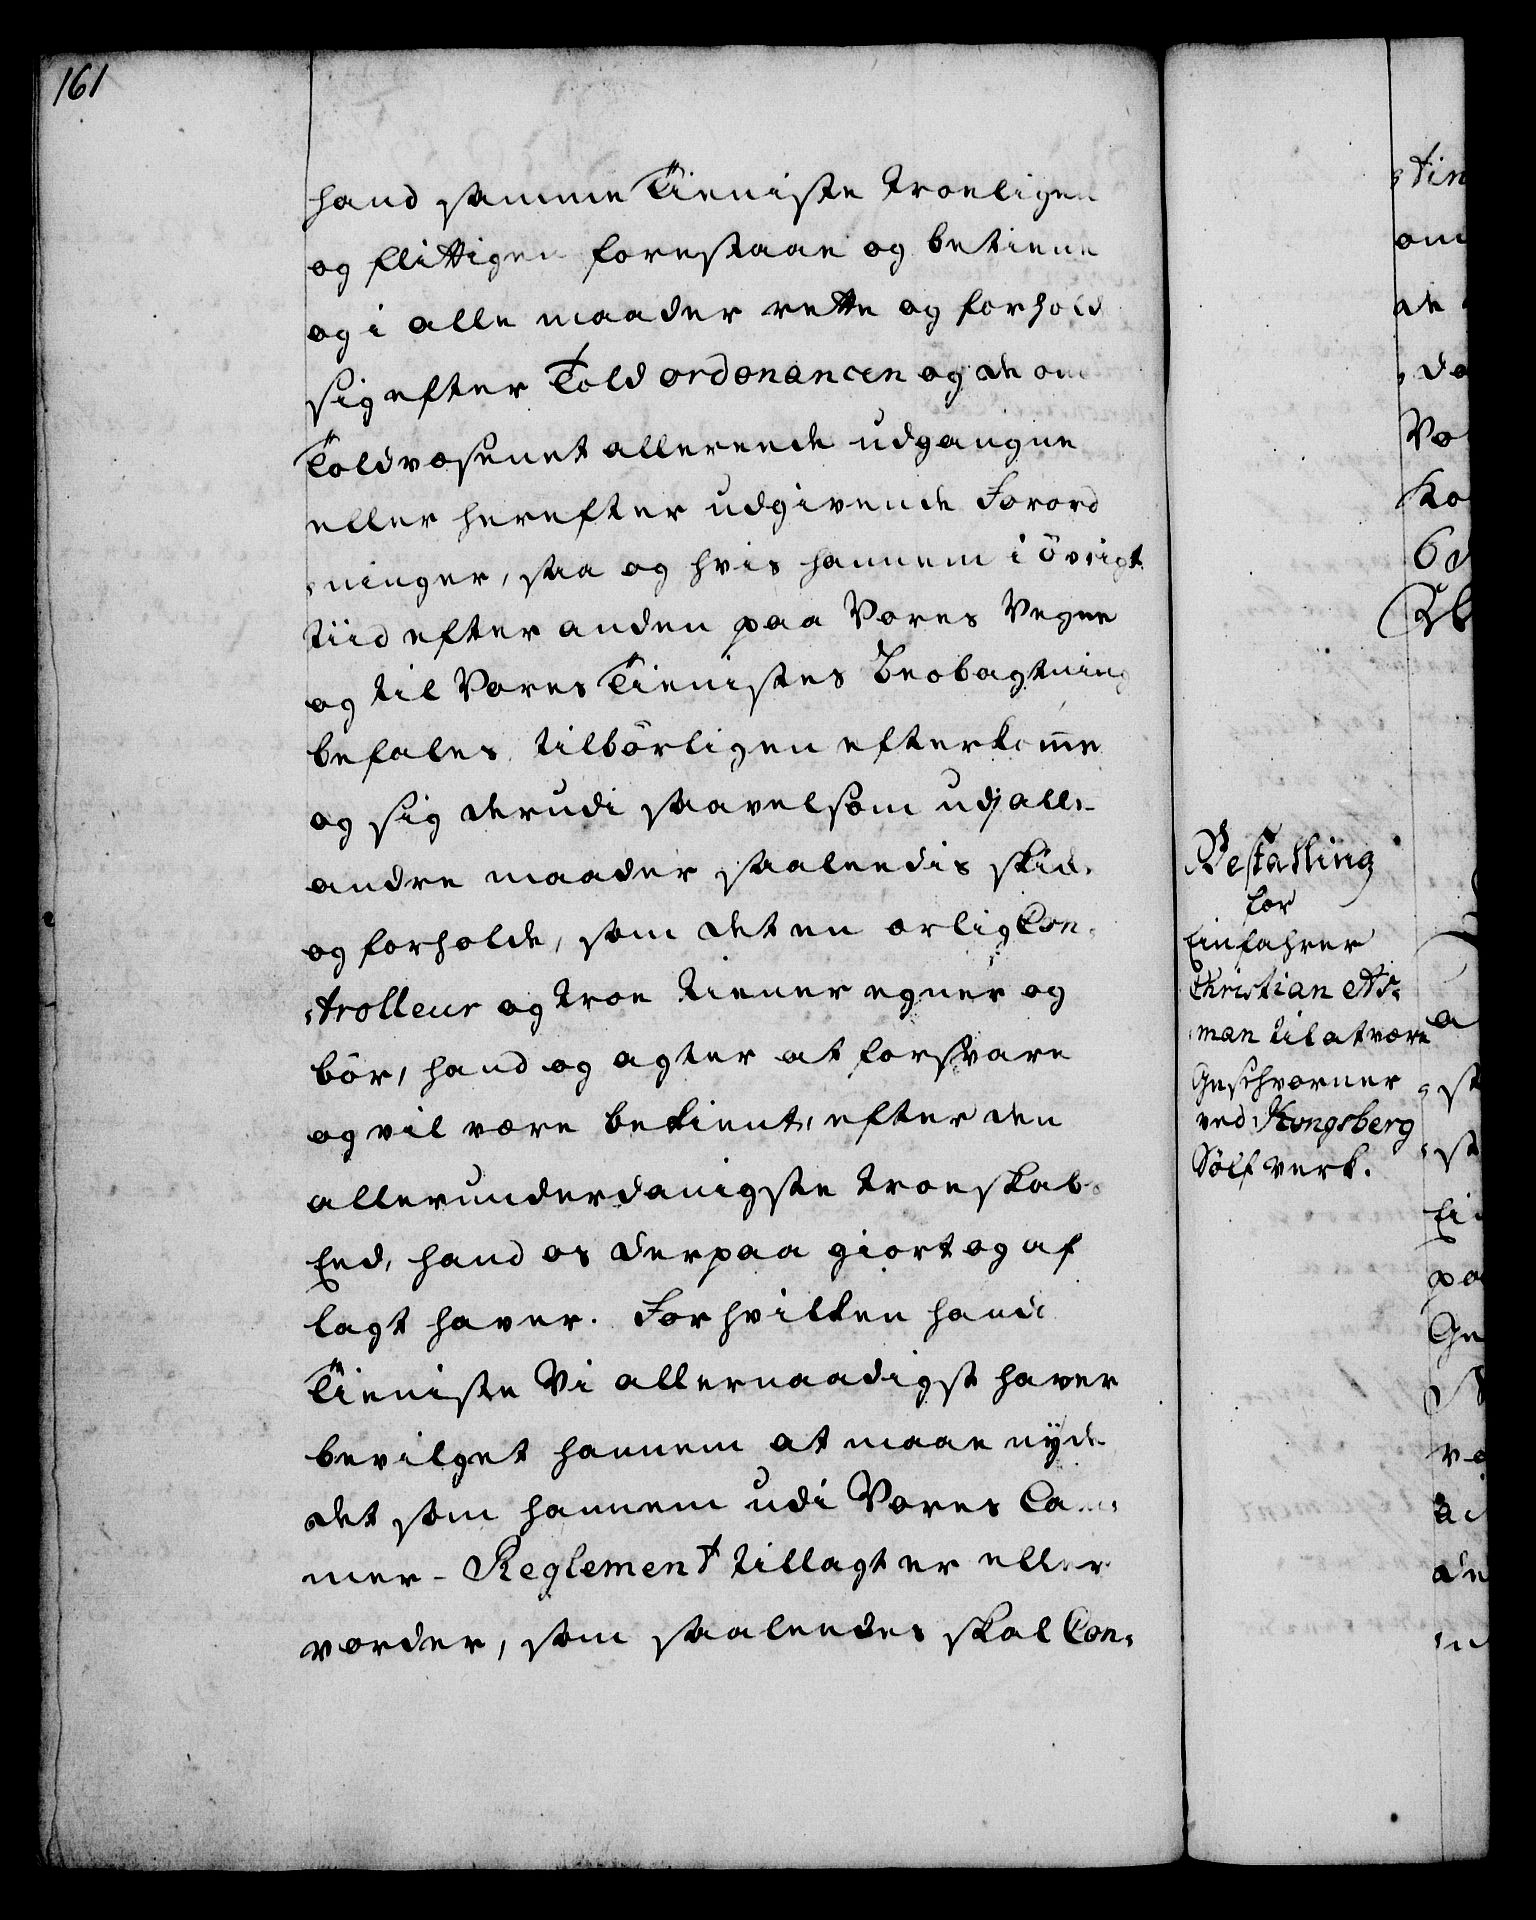 161
hand samme Tieniste troeligen
og flittigen forestaae og betiene
og i alle maader rette og forhold
sig efter Told ordonancen og de om
Toldvæsenet allereede udgangne
eller herefter udgivende Forord
-ninger, saa og hvis hannem i övrigt
tiid efter anden paa Vores Vegne
og til Vores Tienistes Beobagtning
befales, tilbörligen efterkom̄e
og sig derudi saavelsom udj alle
andre maader saaleedis skik
og forholde, som det en ærlig Con-
-trolleur og troe tiener egner og
bör, hand og agter at forsvare
og vil være bekient, efter den
allerunderdanigste troeskabs
Eed, hand os derpaa giort og af
lagt haver. For hvilken hans
Tieniste Vi allernaadigst haver
bevilget hannem at maae nÿde
det som hannem udi Vores Cam-
mer-Reglement tillagt er eller
vorder, som saaleedes skal Con-
Bestalling
for
Einfahrer
Christian As-
-man til at være
Geschworner
ved Kongsberg
Sölfverk.